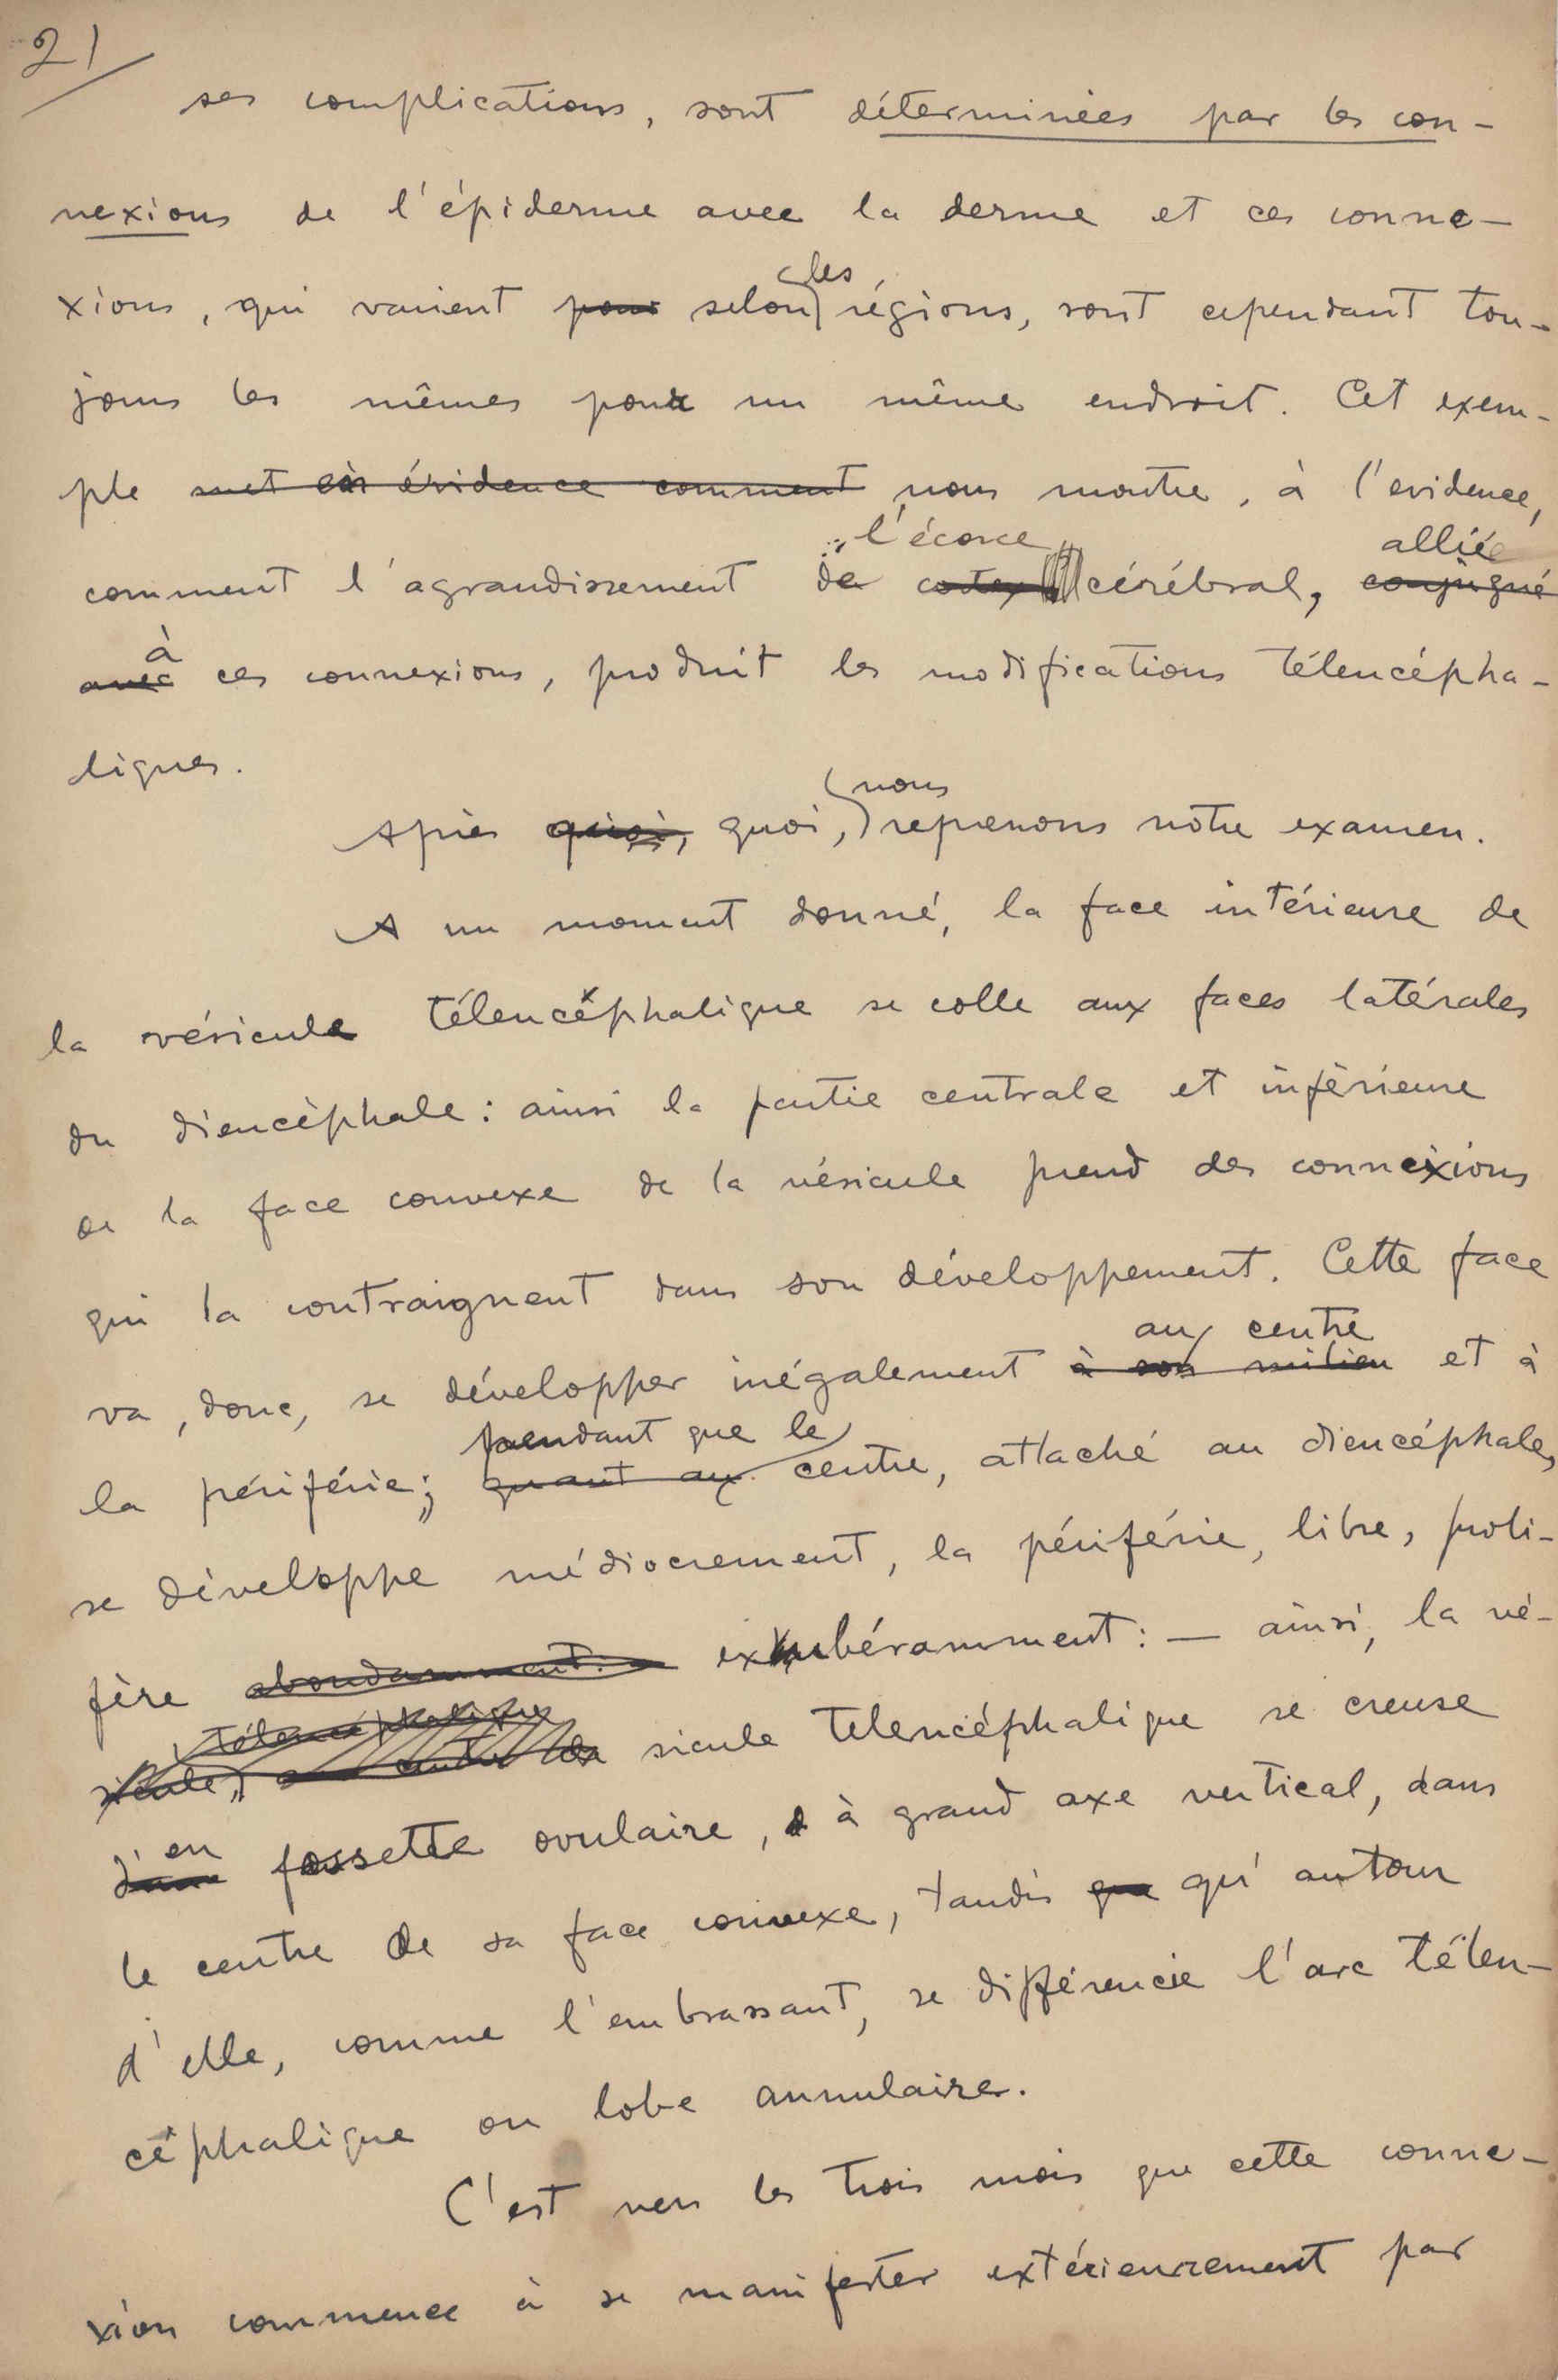 21/
ses complications, sont déterminées par les con-
nexions de l'épiderme avec la derme et ces conne-
xions, qui varient pour selon les régions, sont cependant tou-
jours les mêmes pour un même endroit. Cet exem-
ple met en évidence comment nous montre, à l'evidence,
l'écorce alliée
comment l'agrandissement de cortex cérébral, conjugué
à
avec ces connexions, produit les modifications télencépha-
liques.
nous
Après quoi, quoi, reprenons notre examen.
A un moment donné, la face intérieure de
la vésicule télencéphalique se colle aux faces latérales
du diencéphale : ainsi la partie centrale et inférieure
de la face convexe de la vésicule prend des connexions
qui la contraignent dans son développement. Cette face
au centre
va, donc, se développer inégalement à son milieu et à
pendant que le
la périférie; quant au centre, attaché au diencéphale,
se développe médiocrement, la périférie, libre, proli-
fère abondamment: exubéramment: — ainsi, la vé-
télencéphalique
sicule, centre la sicule telencéphalique se creuse
en
d'une fossette ovulaire, à grand axe vertical, dans
le centre de sa face convexe, tandis que qu'autour
d'elle, comme l'embrassant, se différencie l'arc télen-
céphalique ou lobe annulaire.
C'est vers les trois mois que cette conne-
xion commence à se manifester extérieurement par